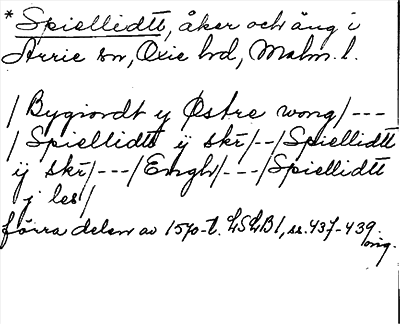 * Spiellidtt, åker och äng i
Arrie sn, Oxie hd, Malm. l.
/ Bygiordt y Østre wong/---
/ Spiellidtt ÿ skr/--/Spiellidtt
ÿ skr/---/Engh/---/Spiellidtt
y les/
förra delen av 1570-t. LSLB1, ss. 437-439.
orig.